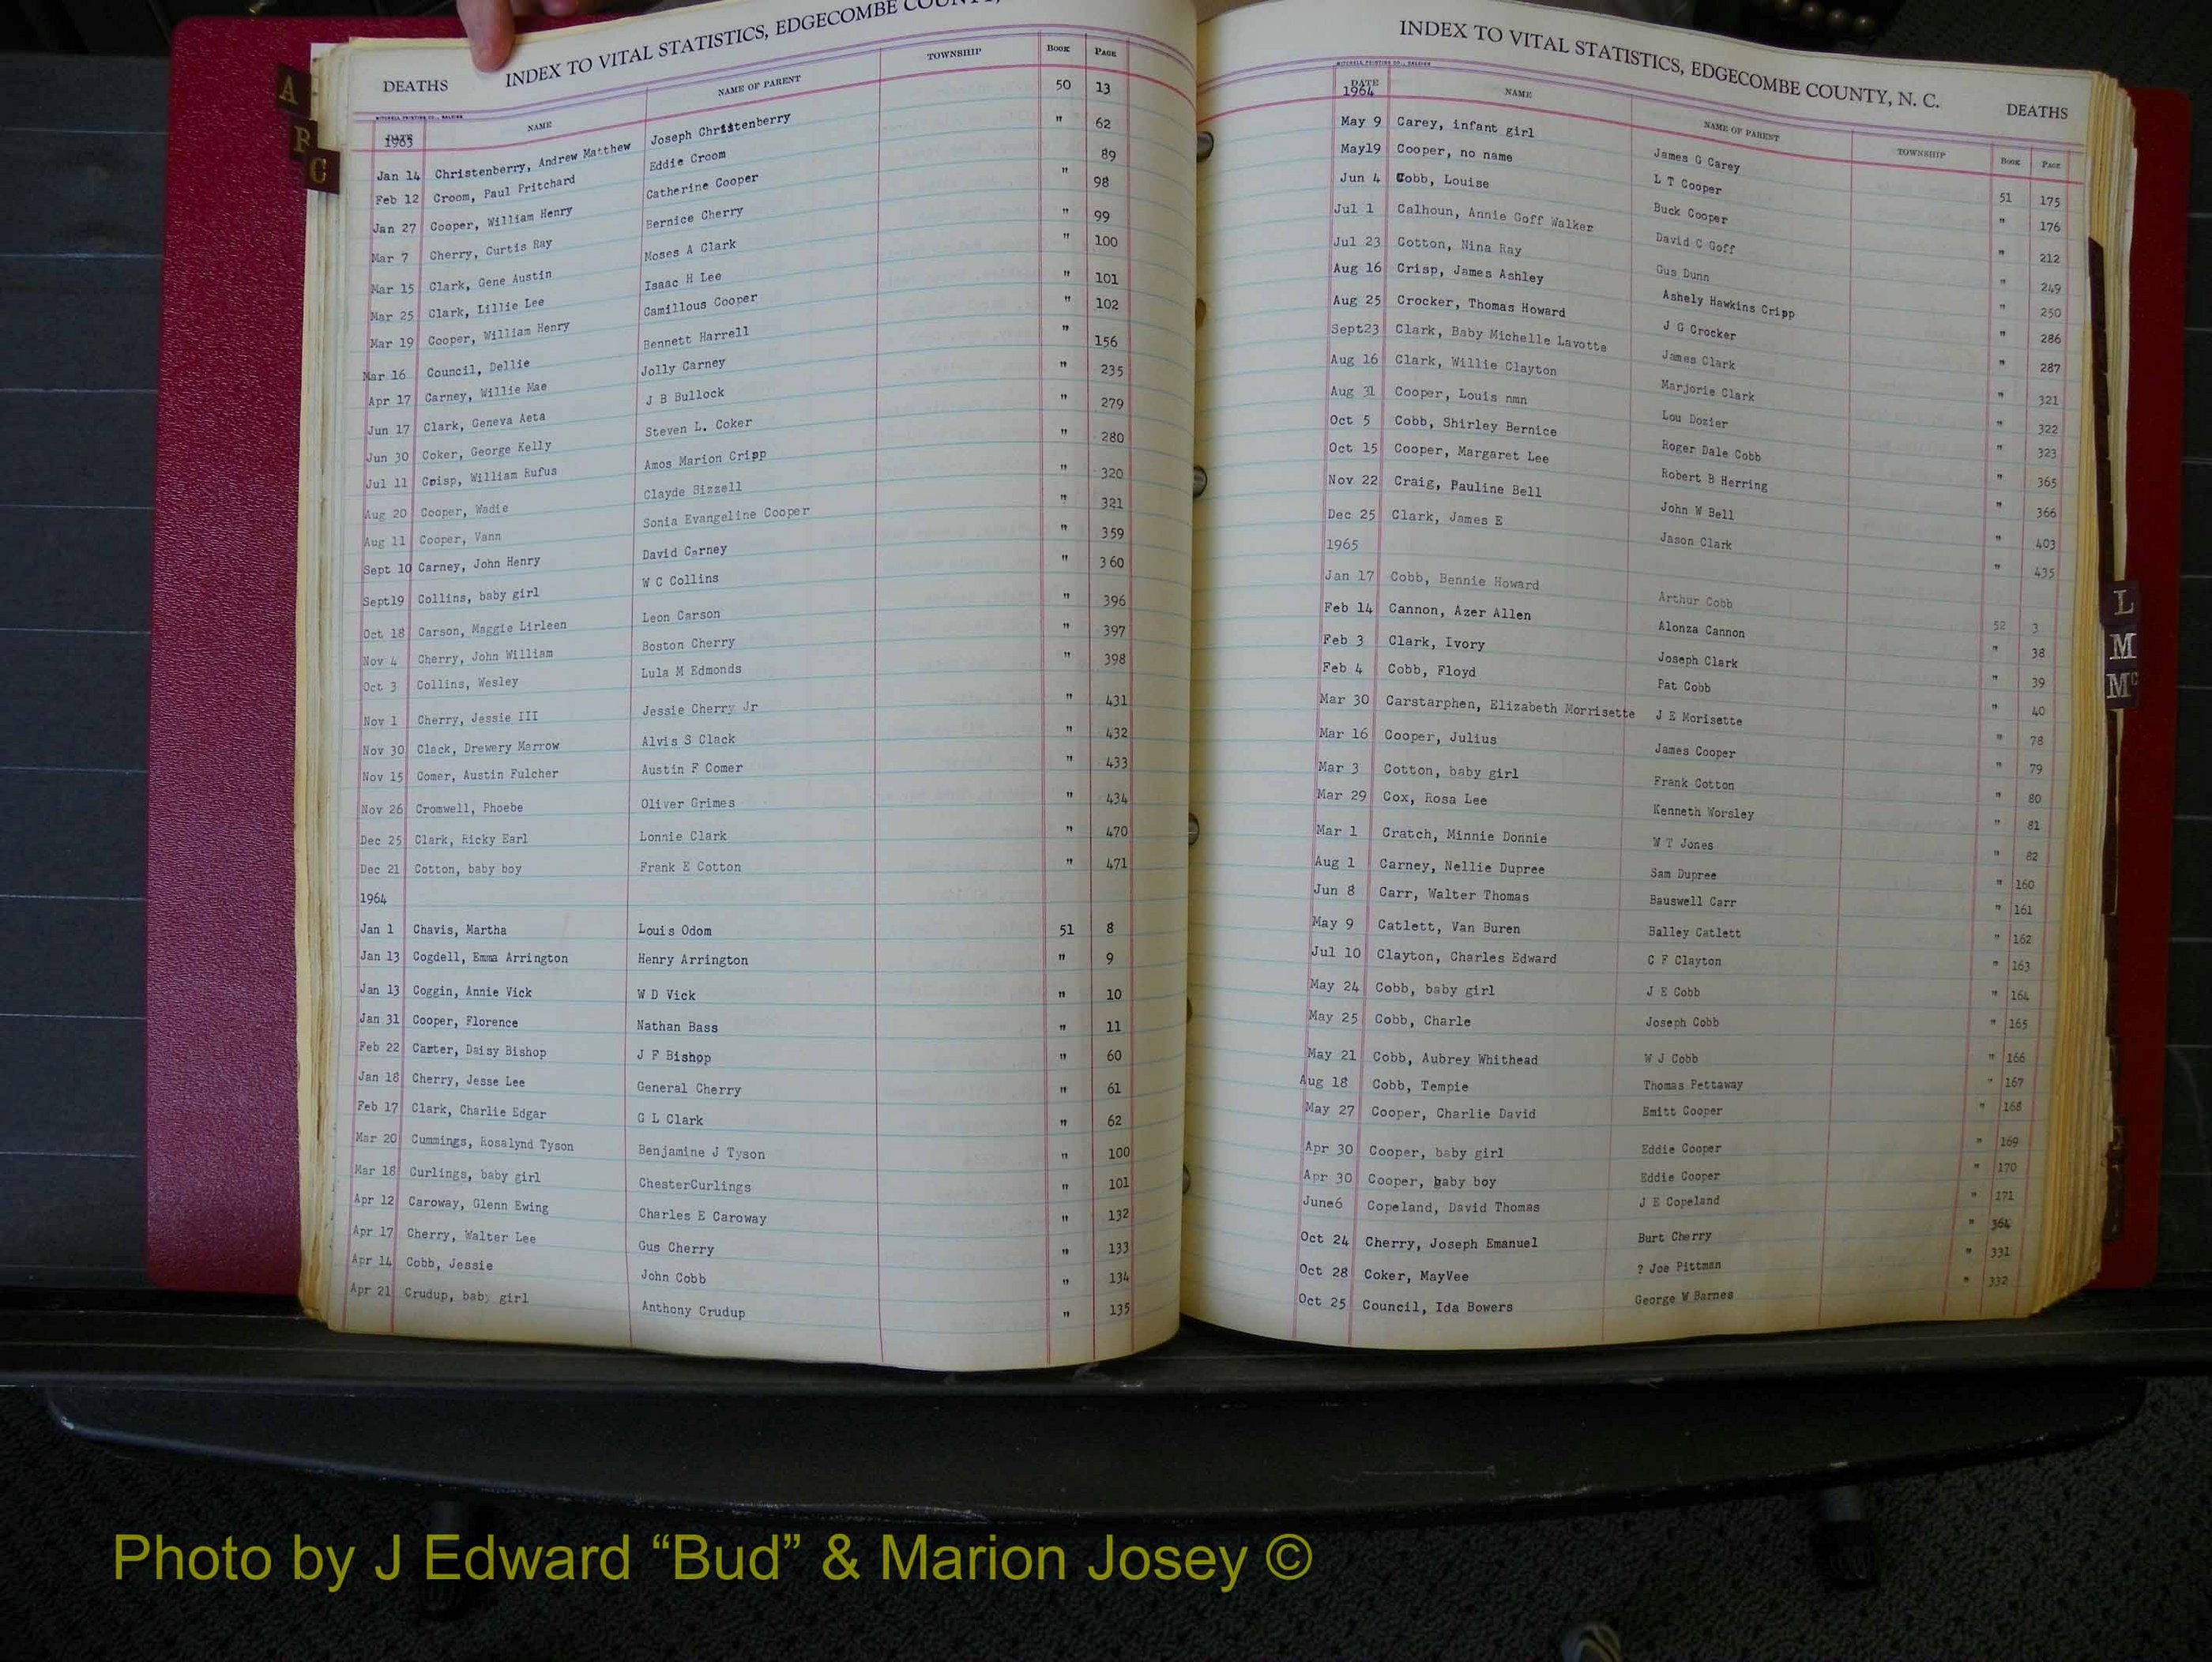 DEATHS INDEX TO VITAL STATISTICS, EDGECOMBE COUNTY,
MITCHELL PRINTING CO., RALEIGH
DATE NAME NAME OF PARENT TOWNSHIP BOOK PAGE
1963
Jan 14 Christenberry, Andrew Matthew Joseph Christenberry 50 13
Feb 12 Croom, Paul Pritchard Eddie Croom " 62
Jan 27 Cooper, William Henry Catherine Cooper 89
Mar 7 Cherry, Curtis Ray Bernice Cherry " 98
Mar 15 Clark, Gene Austin Moses A Clark " 99
Mar 25 Clark, Lillie Lee Isaac H Lee " 100
Mar 19 Cooper, William Henry Camillous Cooper " 101
Mar 16 Council, Dellie Bennett Harrell " 102
Apr 17 Carney, Willie Mae Jolly Carney " 156
Jun 17 Clark, Geneva Aeta J B Bullock " 235
Jun 30 Coker, George Kelly Steven L. Coker " 279
Jul 11 Crisp, William Rufus Amos Marion Cripp " 280
Aug 20 Cooper, Wadie Clayde Bizzell " 320
Aug 11 Cooper, Vann Sonia Evangeline Cooper " 321
Sept 10 Carney, John Henry David Carney " 359
Sept19 Collins, baby girl W C Collins " 360
Oct 18 Carson, Maggie Lirleen Leon Carson " 396
Nov 4 Cherry, John William Boston Cherry " 397
Oct 3 Collins, Wesley Lula M Edmonds " 398
Nov 1 Cherry, Jessie III Jessie Cherry Jr " 431
Nov 30 Clack, Drewery Marrow Alvis S Clack " 432
Nov 15 Comer, Austin Fulcher Austin F Comer " 433
Nov 26 Cromwell, Phoebe Oliver Grimes " 434
Dec 25 Clark, Ricky Earl Lonnie Clark " 470
Dec 21 Cotton, baby boy Frank E Cotton " 471
1964
Jan 1 Chavis, Martha Louis Odom 51 8
Jan 13 Cogdell, Emma Arrington Henry Arrington " 9
Jan 13 Coggin, Annie Vick W D Vick " 10
Jan 31 Cooper, Florence Nathan Bass " 11
Feb 22 Carter, Daisy Bishop J F Bishop " 60
Jan 18 Cherry, Jesse Lee General Cherry " 61
Feb 17 Clark, Charlie Edgar G L Clark " 62
Mar 20 Cummings, Rosalynd Tyson Benjamine J Tyson " 100
Mar 18 Curlings, baby girl ChesterCurlings " 101
Apr 12 Caroway, Glenn Ewing Charles E Caroway " 132
Apr 17 Cherry, Walter Lee Gus Cherry " 133
Apr 14 Cobb, Jessie John Cobb " 134
Apr 21 Crudup, baby girl Anthony Crudup " 135
INDEX TO VITAL STATISTICS, EDGECOMBE COUNTY, N. C. DEATHS
MITCHELL PRINTING CO., RALEIGH
DATE NAME NAME OF PARENT TOWNSHIP BOOK PAGE
1964
May 9 Carey, infant girl James G Carey 51 175
May19 Cooper, no name L T Cooper " 176
Jun 4 Cobb, Louise Buck Cooper " 212
Jul 1 Calhoun, Annie Goff Walker David C Goff " 249
Jul 23 Cotton, Nina Ray Gus Dunn " 250
Aug 16 Crisp, James Ashley Ashely Hawkins Cripp " 286
Aug 25 Crocker, Thomas Howard J G Crocker " 287
Sept23 Clark, Baby Michelle Lavotte James Clark " 321
Aug 16 Clark, Willie Clayton Marjorie Clark " 322
Aug 31 Cooper, Louis nmn Lou Dozier " 323
Oct 5 Cobb, Shirley Bernice Roger Dale Cobb " 365
Oct 15 Cooper, Margaret Lee Robert B Herring " 366
Nov 22 Craig, Pauline Bell John W Bell " 403
Dec 25 Clark, James E Jason Clark " 435
1965
Jan 17 Cobb, Bennie Howard Arthur Cobb 52 3
Feb 14 Cannon, Azer Allen Alonza Cannon " 38
Feb 3 Clark, Ivory Joseph Clark " 39
Feb 4 Cobb, Floyd Pat Cobb " 40
Mar 30 Carstarphen, Elizabeth Morrisette J E Morisette " 78
Mar 16 Cooper, Julius James Cooper " 79
Mar 3 Cotton, baby girl Frank Cotton " 80
Mar 29 Cox, Rosa Lee Kenneth Worsley " 81
Mar 1 Cratch, Minnie Donnie W T Jones " 82
Aug 1 Carney, Nellie Dupree Sam Dupree " 160
Jun 8 Carr, Walter Thomas Bauswell Carr " 161
May 9 Catlett, Van Buren Balley Catlett " 162
Jul 10 Clayton, Charles Edward C F Clayton " 163
May 24 Cobb, baby girl J E Cobb " 164
May 25 Cobb, Charle Joseph Cobb " 165
May 21 Cobb, Aubrey Whithead W J Cobb " 166
Aug 18 Cobb, Tempie Thomas Pettaway " 167
May 27 Cooper, Charlie David Emitt Cooper " 168
Apr 30 Cooper, baby girl Eddie Cooper " 169
Apr 30 Cooper, baby boy Eddie Cooper " 170
June6 Copeland, David Thomas J E Copeland " 171
Oct 24 Cherry, Joseph Emanuel Burt Cherry " 364
Oct 28 Coker, MayVee ? Joe Pittman " 331
Oct 25 Council, Ida Bowers George W Barnes " 332
A
B
C
L
M
Mc
Photo by J Edward “Bud” & Marion Josey ©